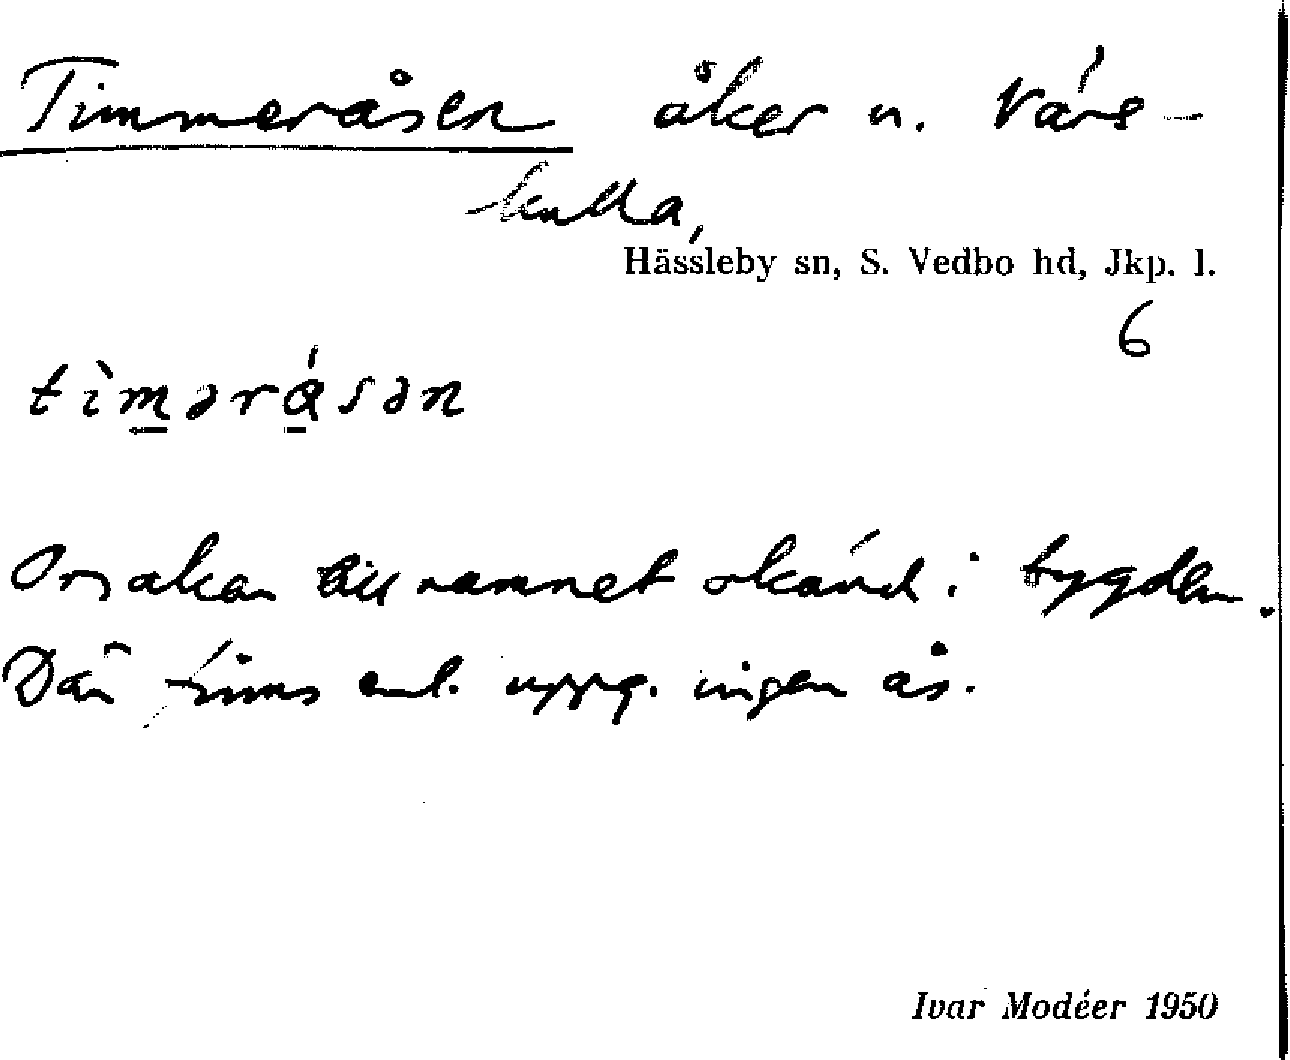 Timmeråsen åker u. Våre-
kulla,
Hässleby sn, S. Vedbo hd, Jkp. l.
6
tìmərásən
Orsaken till namnet okänd i bygden.
Där finns enl. uppg. ingen ås.
Ivar Modéer 1950